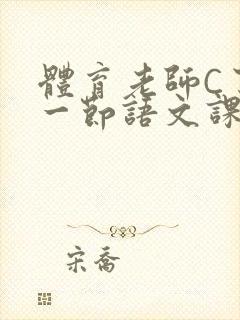 體育老師C
一節語文課
宋喬